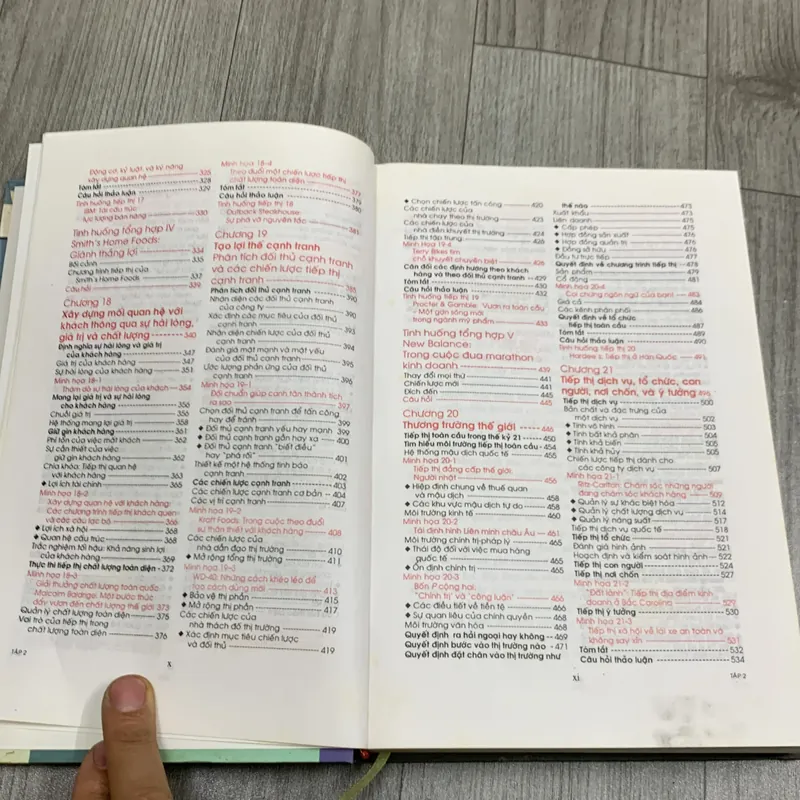 Động cơ, kỷ luật, và kỹ năng
xây dựng quan hệ 325
Tóm tắt 328
Câu hỏi thảo luận 329
Tình huống tiếp thị 17
IBM: Tái cấu trúc
lực lượng bán hàng 330
Tình huống tổng hợp IV
Smith's Home Foods:
Giành thắng lợi 334
Bối cảnh 335
Chương trình tiếp thị của
Smith's Home Foods 337
Câu hỏi 339
Chương 18
Xây dựng mối quan hệ với
khách thông qua sự hài lòng,
giá trị và chất lượng 340
Định nghĩa sự hài lòng và giá trị
của khách hàng 347
Giá trị của khách hàng 347
Sự hài lòng của khách hàng 351
Minh họa 18-1
Thăm dò sự hài lòng của khách 354
Mang lại giá trị và sự hài lòng
cho khách hàng 356
Chuỗi giá trị 356
Hệ thống mang lại giá trị 358
Giữ gìn khách hàng 361
Phí tổn của việc mất khách 362
Sự cần thiết của việc
giữ gìn khách hàng 362
Chìa khóa: Tiếp thị quan hệ
với khách hàng 363
◆ Lợi ích tài chính 365
Minh họa 18-2
Xây dựng quan hệ với khách hàng:
Các chương trình tiếp thị khách quen
và các câu lạc bộ 366
◆ Lợi ích xã hội 368
◆ Quan hệ cấu trúc 368
Trắc nghiệm tối hậu: Khả năng sinh lợi
của khách hàng 369
Thực thi tiếp thị chất lượng toàn diện 372
Minh họa 18-3
Giải thưởng chất lượng toàn quốc
Malcolm Baldrige: Một bước thúc
đẩy vươn đến chất lượng thế giới 373
Quản lý chất lượng toàn diện 375
Vai trò của tiếp thị trong
chất lượng toàn diện 376
TẬP 2
X
Minh họa 18-4
Theo đuổi một chiến lược tiếp thị
chất lượng toàn diện 377
Tóm tắt 379
Câu hỏi thảo luận 380
Tình huống tiếp thị 18
Outback Steakhouse:
Sự phá vỡ nguyên tắc 381
Chương 19
Tạo lợi thế cạnh tranh
Phân tích đối thủ cạnh tranh
và các chiến lược tiếp thị
cạnh tranh 385
Phân tích đối thủ cạnh tranh 390
Nhận diện các đối thủ cạnh tranh
của công ty 390
Xác định các mục tiêu của đối thủ
cạnh tranh 393
Nhận diện chiến lược của đối thủ
cạnh tranh 394
Đánh giá mặt mạnh và mặt yếu
của đối thủ cạnh tranh 395
Ước lượng phản ứng của đối thủ
cạnh tranh 396
Minh họa 19-1
Đối chuẩn giúp canh tân thành tích
ra sao 397
Chọn đối thủ cạnh tranh để tấn công
hay để tránh 399
◆ Đối thủ cạnh tranh yếu hay mạnh 399
◆ Đối thủ cạnh tranh gần hay xa 400
◆ Đối thủ cạnh tranh "biết điều"
hay "phá rối" 401
Thiết kế một hệ thống tình báo
cạnh tranh 402
Các chiến lược cạnh tranh 403
Các chiến lược cạnh tranh cơ bản 404
Các vị trí cạnh tranh 407
Minh họa 19-2
Kraft Foods: Trong cuộc theo đuổi
sự thân thiết với khách hàng 408
Các chiến lược của
nhà dẫn đạo thị trường 410
◆ Mở rộng tổng thị trường 411
Minh họa 19-3
WD-40: Những cách khéo léo để
tạo cách dùng mới 413
◆ Bảo vệ thị phần 415
◆ Mở rộng thị phần 417
Các chiến lược của
nhà thách đố thị trường 419
◆ Xác định mục tiêu chiến lược
và đối thủ 419
◆ Chọn chiến lược tấn công 420
Các chiến lược của
nhà chạy theo thị trường 423
Các chiến lược của
nhà điền khuyết thị trường 424
Tiếp thị tập trung 426
Minh Họa 19-4
Terry Bikes tìm
chỗ khuyết chuyên biệt 426
Cân đối các định hướng theo khách
hàng và theo đối thủ cạnh tranh 429
Tóm tắt 430
Câu hỏi thảo luận 432
Tình huống tiếp thị 19
Procter & Gamble: Vươn ra toàn cầu
- Một gợn sóng mới
trong ngành mỹ phẩm 433
Tình huống tổng hợp V
New Balance:
Trong cuộc đua marathon
kinh doanh 439
Thay đổi mọi thứ 441
Chiến lược mới 441
Đích đến 445
Câu hỏi 445
Chương 20
Thương trường thế giới 446
Tiếp thị toàn cầu trong thế kỷ 21 450
Tìm hiểu môi trường tiếp thị toàn cầu 454
Hệ thống mậu dịch quốc tế 454
Minh họa 20-1
Tiếp thị đẳng cấp thế giới:
Người nhật 456
◆ Hiệp định chung về thuế quan
và mậu dịch 458
◆ Các khu vực mậu dịch tự do 458
Môi trường kinh tế 460
Minh họa 20-2
Tái định hình Liên minh châu Âu 461
Môi trường chính trị-pháp lý 465
◆ Thái độ đối với việc mua hàng
quốc tế 465
◆ Ổn định chính trị 465
Minh họa 20-3
Bốn P cộng hai:
"Chính trị" và "công luận" 466
◆ Các điều tiết về tiền tệ 466
◆ Sự quan liêu của chính quyền 468
Môi trường văn hóa 468
Quyết định ra hải ngoại hay không 469
Quyết định bước vào thị trường nào 471
Quyết định đặt chân vào thị trường như
thế nào 473
Xuất khẩu 473
Liên doanh 475
◆ Cấp phép 475
◆ Hợp đồng sản xuất 476
◆ Hợp đồng quản trị 476
◆ Đồng sở hữu 476
Đầu tư trực tiếp 477
Quyết định về chương trình tiếp thị 478
Sản phẩm 479
Cổ động 481
Minh họa 20-4
Coi chừng ngôn ngữ của bạn! 483
Giá cả 484
Các kênh phân phối 486
Quyết định về tổ chức
tiếp thị toàn cầu 487
Tóm tắt 489
Câu hỏi thảo luận 490
Tình huống tiếp thị 20
Hardee's: Tiếp thị ở Hàn Quốc 491
Chương 21
Tiếp thị dịch vụ, tổ chức, con
người, nơi chốn, và ý tưởng 495
Tiếp thị dịch vụ 500
Bản chất và đặc trưng của
một dịch vụ 502
◆ Tính vô hình 503
◆ Tính bất khả phân 504
◆ Tính khả biến 505
◆ Tính khả hủy 505
Chiến lược tiếp thị dành cho
các công ty dịch vụ 507
Minh họa 21-1
Ritz-Carlton: Chăm sóc những người
đang chăm sóc khách hàng 509
◆ Quản lý sự khác biệt hóa 512
◆ Quản lý chất lượng dịch vụ 514
◆ Quản lý năng suất 517
Tiếp thị dịch vụ quốc tế 518
Tiếp thị tổ chức 521
Đánh giá hình ảnh 521
Hoạch định và kiểm soát hình ảnh 522
Tiếp thị con người 524
Tiếp thị nơi chốn 527
Minh họa 21-2
"Đất lành": Tiếp thị địa điểm kinh
doanh ở Bắc Carolina 527
Tiếp thị ý tưởng 530
Minh họa 21-3
Tiếp thị xã hội về lái xe an toàn và
không say xỉn 531
Tóm tắt 532
Câu hỏi thảo luận 534
XI
TẬP 2